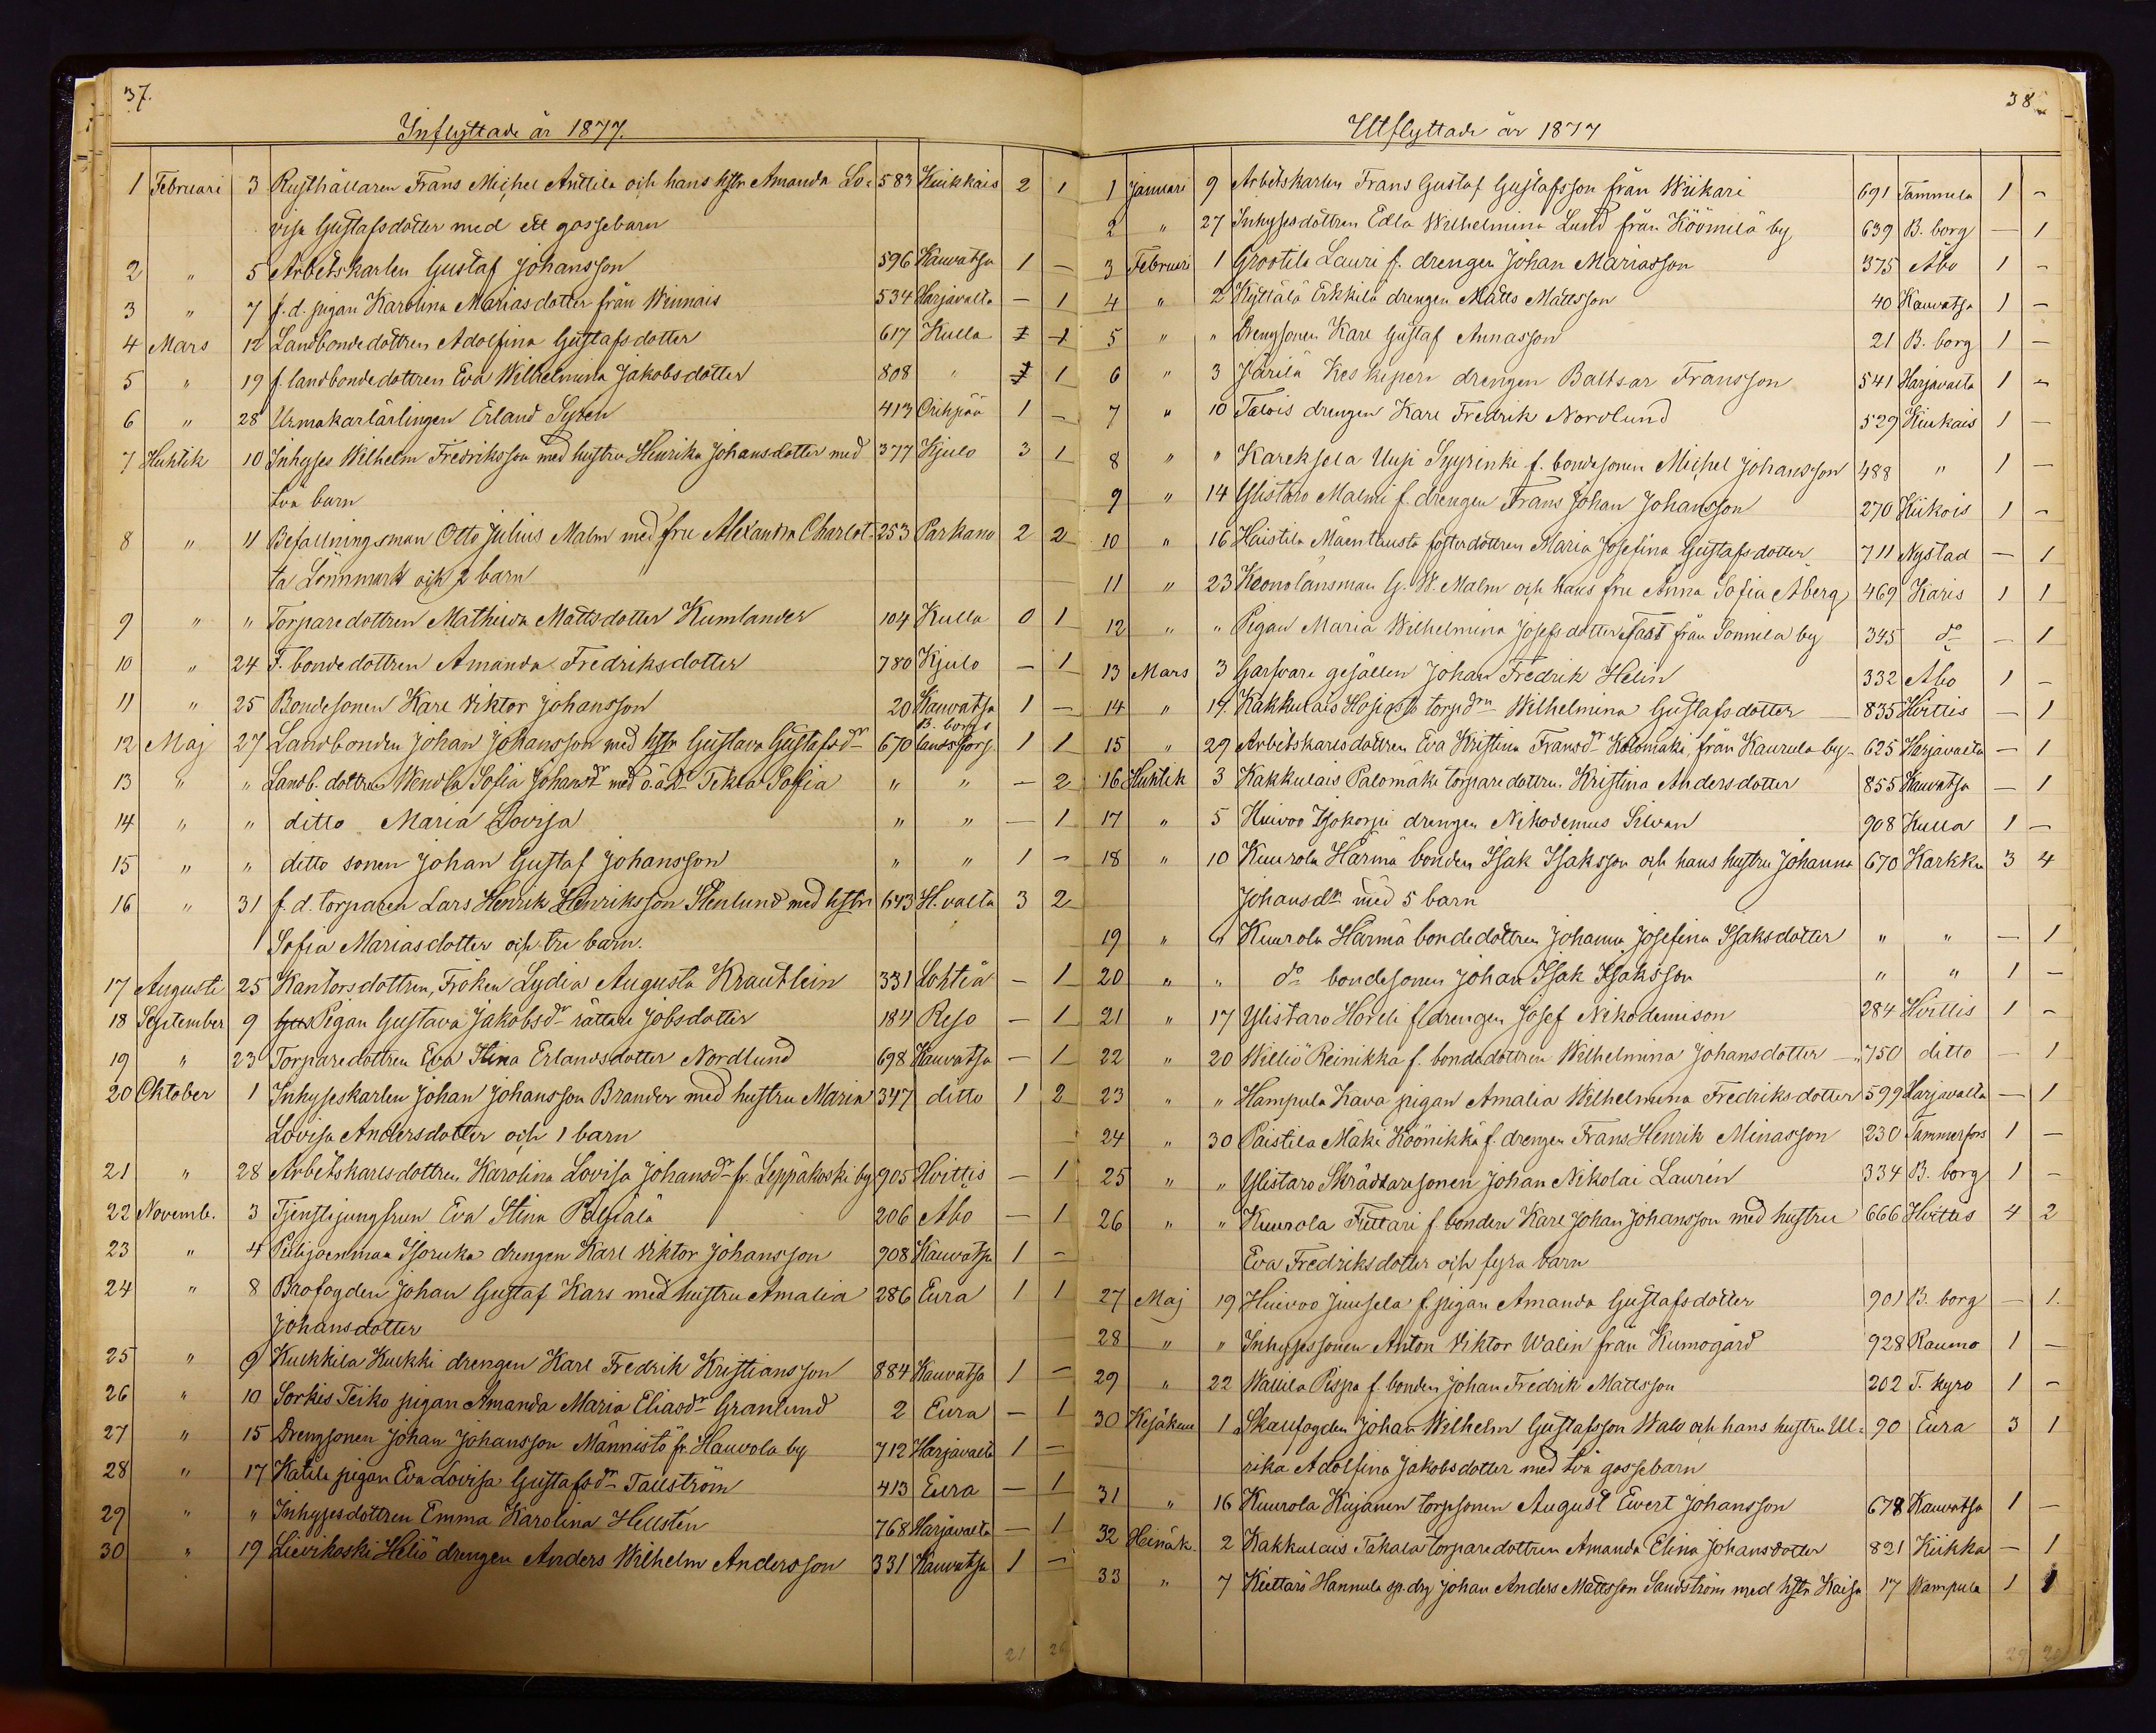 37.
Inflyttade år 1877.
1 Februari 3 Rusthållaren Frans Michel Anttila och hans hstr Amanda Lo- 583 Kiukkais 2 1
visa Gustafsdotter med ett gossebarn
2 " 5 Arbetskarlen Gustaf Johansson 596 Kauvatsa 1 –
3 " 7 f.d. pigan Karolina Mariasdotter från Winnais 534 Harjavalta – 1
4 Mars 12 Landbondedottren Adolfina Gustafsdotter 617 Kulla 1
5 " 19 f. landbondedottren Eva Wilhelmina Jakobsdotter 808 " 1
6 " 28 Urmakarlärlingen Erland Syren 413 Orihpää 1 –
7 Huhtik 10 Inhyses Wilhelm Fredriksson med hustru Henrika Johansdotter med 377 Kjulo 3 1
två barn
8 " 11 Befallningsman Otto Julius Malm med fru Alexandra Charlot- 253 Parkano 2 2
ta Lönnmark och 2 barn
9 " " Torparedottren Mathilda Mattsdotter Kumlander 104 Kulla 0 1
10 " 24 F. bondedottren Amanda Fredriksdotter 780 Kjulo – 1
11 " 25 Bondesonen Karl Viktor Johansson 20 Kauvatsa 1 –
12 Maj 27 Landbonden Johan Johansson med hstr Gustava Gustafsdr 670 B. borgs landsförs. 1 1
13 " " Landb. dottren Wendla Sofia Johansdr med o.ä. Dr Tekla Sofia " " – 2
14 " " ditto Maria Lovisa " " – 1
15 " " ditto sonen Johan Gustaf Johansson " " 1 –
16 " 31 f.d. torparen Lars Henrik Henriksson Stenlund med hstr 643 H.valta 3 2
Sofia Mariasdotter och tre barn.
17 Augusti 25 Kantorsdottren, Fröken Lydia Augusta Krautlein 331 Lohteå – 1
18 September 9 Pigan Gustava Jakobsdr rättare Jobsdotter 184 Reso – 1
19 " 23 Torparedottren Eva Stina Erlandsdotter Nordlund 698 Kauvatsa – 1
20 Oktober 1 Inhyseskarlen Johan Johansson Brander med hustru Maria 347 ditto 1 2
Lovisa Andersdotter och 1 barn
21 " 28 Arbetskarlsdottren Karolina Lovisa Johansdr fr. Leppäkoski by 905 Hvittis – 1
22 Novemb. 3 Tjenstejungfrun Eva Stina 206 Åbo – 1
23 " 4 drengen Karl Viktor Johansson 908 Kauvatsa 1 –
24 " 8 Brofogden Johan Gustaf Kars med hustru Amalia 286 Eura 1 1
Johansdotter
25 " 9 Kukkila Kukki drengen Karl Fredrik Kristiansson 884 Kauvatsa 1 –
26 " 10 Sorkis Teiko pigan Amanda Maria Eliasdr Granlund 2 Eura – 1
27 " 15 Drengsonen Johan Johansson Männistö fr. Hauvola by 712 Harjavalta 1 –
28 " 17 Katila pigan Eva Lovisa Gustafsdr Tallström 413 Eura – 1
29 " " Inhysesdottren Emma Karolina Hellstén 768 Harjavalta – 1
30 " 19 Lievikoski Heliö drengen Anders Wilhelm Andersson 331 Kauvatsa 1 –
21 26
38
Utflyttade år 1877
1 Januari 9 Arbetskarlen Frans Gustaf Gustafsson från Wiikari 691 Tammela 1 –
2 " 27 Inhysesdottren Edla Wilhelmina Lund från Köömilä by 639 B. borg – 1
3 Februari 1 Grootila Lauri f. drengen Johan Mariasson 375 Åbo 1 –
4 " 2 Kyttälä Erkkilä drengen Matts Mattsson 40 Kauvatsa 1 –
5 " " Drengsonen Karl Gustaf Annasson 21 B. borg 1 –
6 " 3 Järilä Keskiperi drengen Baltsar Fransson 541 Harjavalta 1 –
7 " 10 Talois drengen Karl Fredrik Nordlund 529 Kiukais 1 –
8 " " Kareksela Uusi Sysrinki f. bondesonen Michel Johansson 488 " 1 –
9 " 14 Ylistaro Malmi f. drengen Frans Johan Johansson 270 Kiikois 1 –
10 " 16 Haistila Mäentausta fosterdottren Maria Josefina Gustafsdotter 711 Nystad – 1
11 " 23 Kronolänsman G. W. Malm och hans fru Anna Sofia Åberg 469 Karis 1 1
12 " " Pigan Maria Wilhelmina Josefsdotter Fast från Sonnila by 345 do – 1
13 Mars 3 Garfvare gesällen Johan Fredrik Helin 332 Åbo 1 –
14 " 14 Kakkulais torpdrn Wilhelmina Gustafsdotter 835 Hvittis – 1
15 " 29 Arbetskarlsdottren Eva Kristina Fransdr Kolomäki från Kaurula by 625 Harjavalta – 1
16 Huhtik 3 Kakkulais Palomäki torparedottren Kristina Andersdotter 855 Kauvatsa – 1
17 " 5 Huivoo Isokorpi drengen Nikodemus Silvan 908 Kulla 1 –
18 " 10 Kuurola Härmä bonden Isak Isaksson och hans hustru Johanna 670 Karkku 3 4
Johansdr med 5 barn
19 " " Kuurola Härmä bondedottren Johanna Josefina Isaksdotter " " – 1
20 " " do bondesonen Johan Isak Isaksson " " 1 –
21 " 17 Ylistaro Horeli f drengen Josef Nikodemison 284 Hvittis 1 –
22 " 20 Williö Reinikka f. bondedottren Wilhelmina Johansdotter 750 ditto – 1
23 " " Hampula Kava pigan Amalia Wilhelmina Fredriksdotter 599 Harjavalta – 1
24 " 30 Paistila Mäki Köönikkä f. drengen Frans Henrik Minasson 230 Tammerfors 1 –
25 " " Ylistaro Skräddaresonen Johan Nikolai Laurén 334 B. borg 1 –
26 " " Kuurola Fittari f. bonden Karl Johan Johansson med hustru 666 Hvittis 4 2
Eva Fredriksdotter och fyra barn
27 Maj 19 Huivoo Juusela f. pigan Amanda Gustafsdotter 901 B. borg – 1.
28 " " Inhysessonen Anton Viktor Walin från Kumogård 928 Raumo 1 –
29 " 22 Wallila Pispa f. bonden Johan Fredrik Mattsson 202 T. kyro 1 –
30 Kesäkuu 1 Skaufogden Johan Wilhelm Gustafsson Walo och hans hustru Ul- 90 Eura 3 1
rika Adolfina Jakobsdotter med två gossebarn
31 " 16 Kuurola Kujanen torpsonen August Evert Johansson 678 Kauvatsa 1 –
32 Heinäk. 2 Kakkulais Takala torparedottren Amanda Elina Johansdotter 821 Kiikka – 1
33 " 7 Kiettare Hannula sp.drg Johan Anders Mattsson Sandström med hstr Kaisa 17 Wampula 1 1
29 20